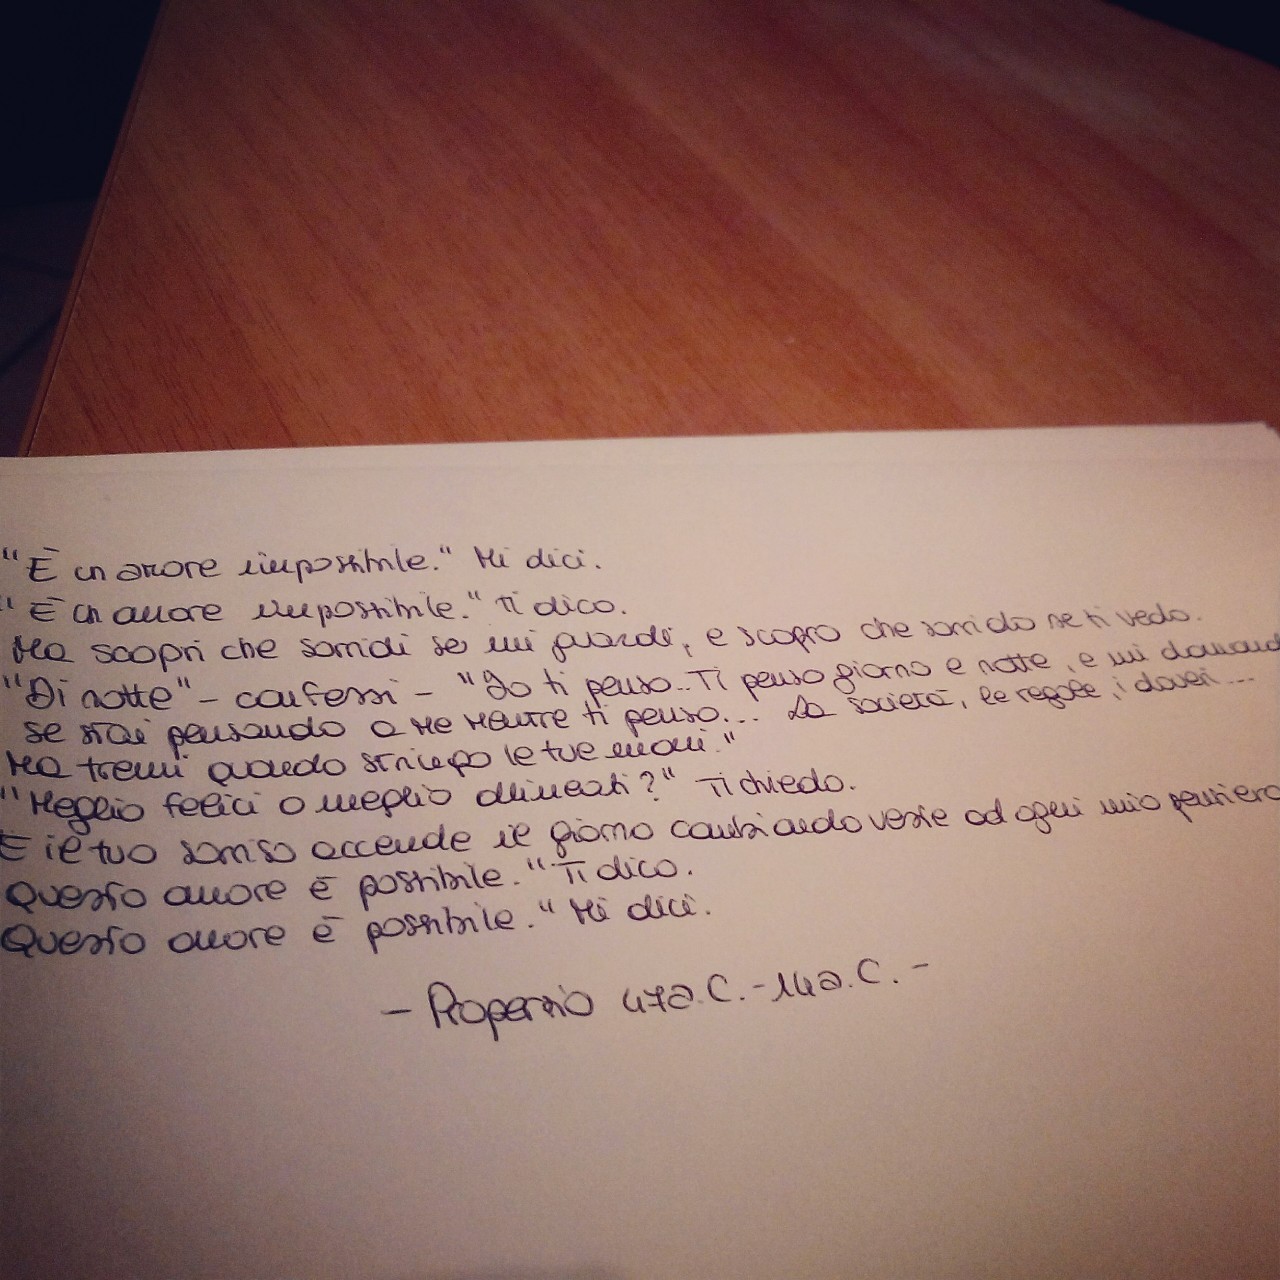 "È un amore impossibile." Mi dici.
"È un amore impossibile." Ti dico.
Ma scopri che sorridi se mi guardi, e scopro che sorrido se ti vedo.
"Di notte" - confessi - "Io ti penso.. Ti penso giorno e notte, e mi domand
se stai pensando a me mentre ti penso... La società, le regole, i doveri...
Ma tremi quando stringo le tue mani."
"Meglio felici o meglio allineati?" Ti chiedo.
E il tuo sorriso accende il giorno cambiando veste ad ogni mio pensiero
Questo amore è possibile." Ti dico.
Questo amore è possibile." Mi dici.
- Properzio 47a.C. - 14a.C. -